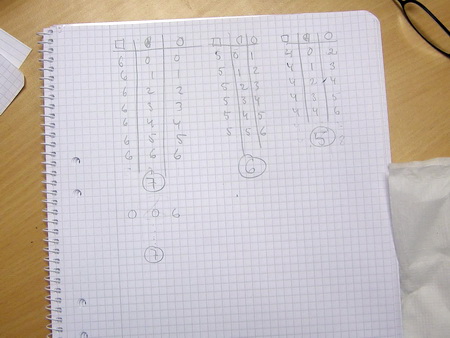 6 0 0
6 1 1
6 2 2
6 3 3
6 4 4
6 5 5
6 6 6
7
5 0 1
5 1 2
5 2 3
5 3 4
5 4 5
5 5 6
6
4 0 2
4 1 3
4 2 4
4 3 5
4 4 6
5
0 0 6
7